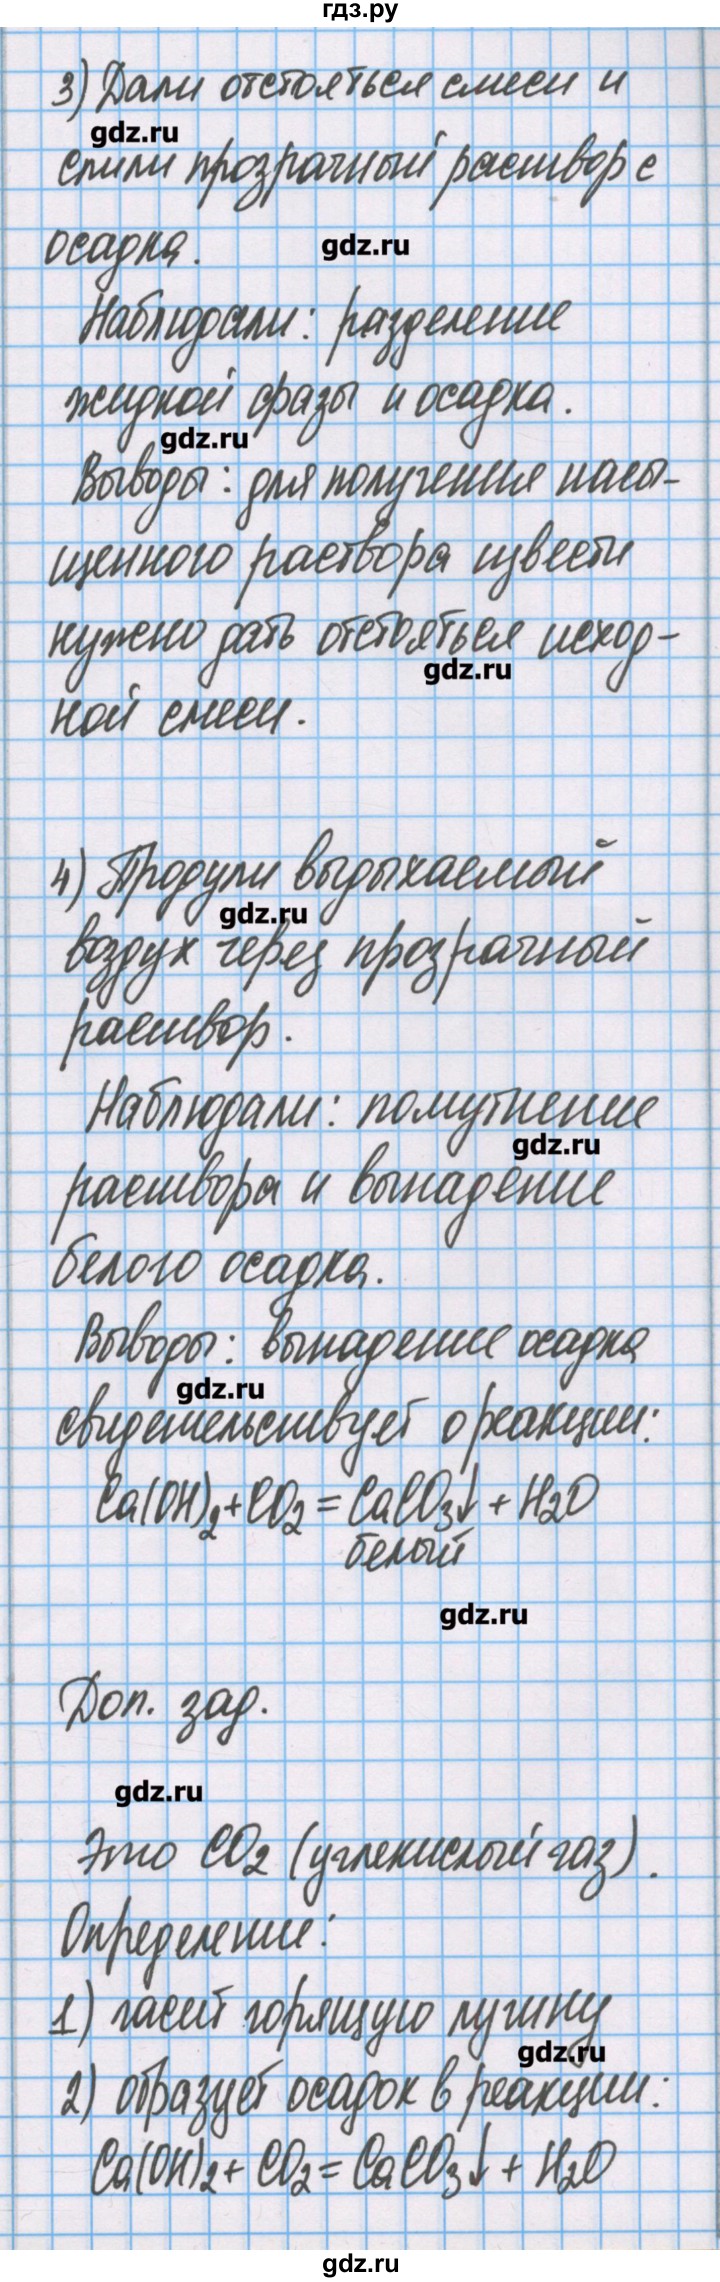 гдз.ру
3) Дали отстояться смеси и
gdz.ru
слили прозрачный раствор с
осадка.
gdz.ru
Наблюдали: разделение
жидкой фразы и осадка.
gdz.ru
Выводы: для получения насы-
щенного раствора извести
нужно дать отстояться исход-
gdz.ru
ной смеси.
4) Продули выдыхаемый
gdz.ru
воздух через прозрачный
раствор.
Наблюдали: помутнение
gdz.ru
раствора и выпадение
белого осадка.
Выводы: выпадение осадка
gdz.ru
свидетельствует о реакции:
Ca(OH)₂+CO₂=CaCO₃↓+H₂O
белый
gdz.ru
Доп. зад.
gdz.ru
Это CO₂ (углекислый газ).
Определение:
1) гасит горящую лучину
gdz.ru
2) образует осадок в реакции:
Ca(OH)₂+CO₂=CaCO₃↓+H₂O
gdz.ru